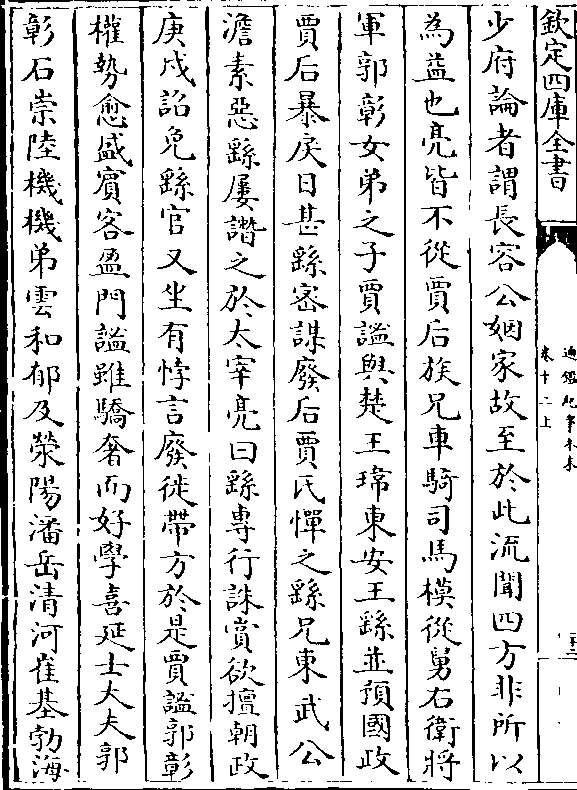 欽定四庫全書
通鑑紀事本末
卷十二上
少府論者謂長容公姻家故至於此流聞四方非所以
為益也亮皆不從賈后族兄車騎司馬模從舅右衛將
軍郭彰女弟之子賈謐與楚王瑋東安王繇並預國政
賈后暴戾日甚繇密謀廢后賈氏憚之繇兄東武公
澹素惡繇屢譖之於太宰亮曰繇專行誅賞欲擅朝政
庚戌詔免繇官又坐有悖言廢徙帶方於是賈謐郭彰
權勢愈盛賓客盈門謐雖驕奢而好學喜延士大夫郭
彰石崇陸機機弟雲和郁及滎陽潘岳清河崔基勃海